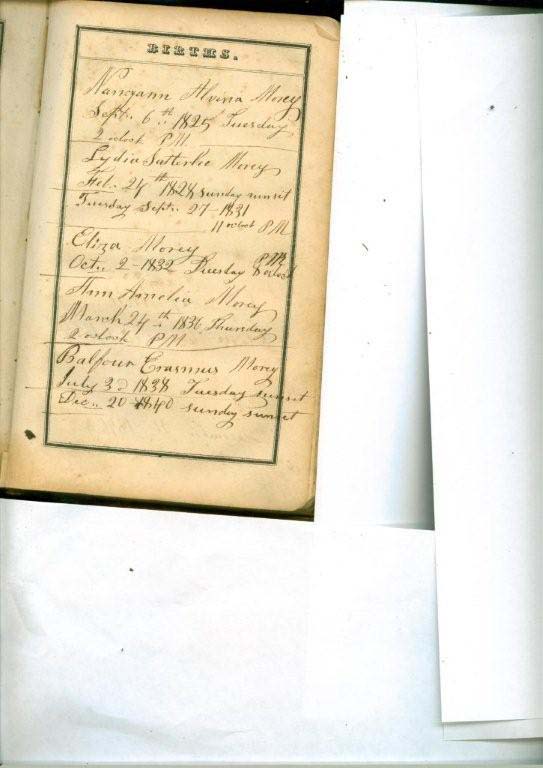 BIRTHS.
Nancyann Alvina Morey
Sept. 6th 1825 Tuesday
2 oclock PM
Lydia Satterlee Morey
Feb. 24th 1828 sunday sunset
Tuesday Sept. 27-1831
11 oclock PM
Eliza Morey
PM
Oct. 2-1832 Tuesday 8 oclock
Ann Amelia Morey
March 24th 1836 Thursday
2 oclock PM
Balfour Erasmus Morey
July 3d 1838 Tuesday sunset
Dec. 20 1840 sunday sunset